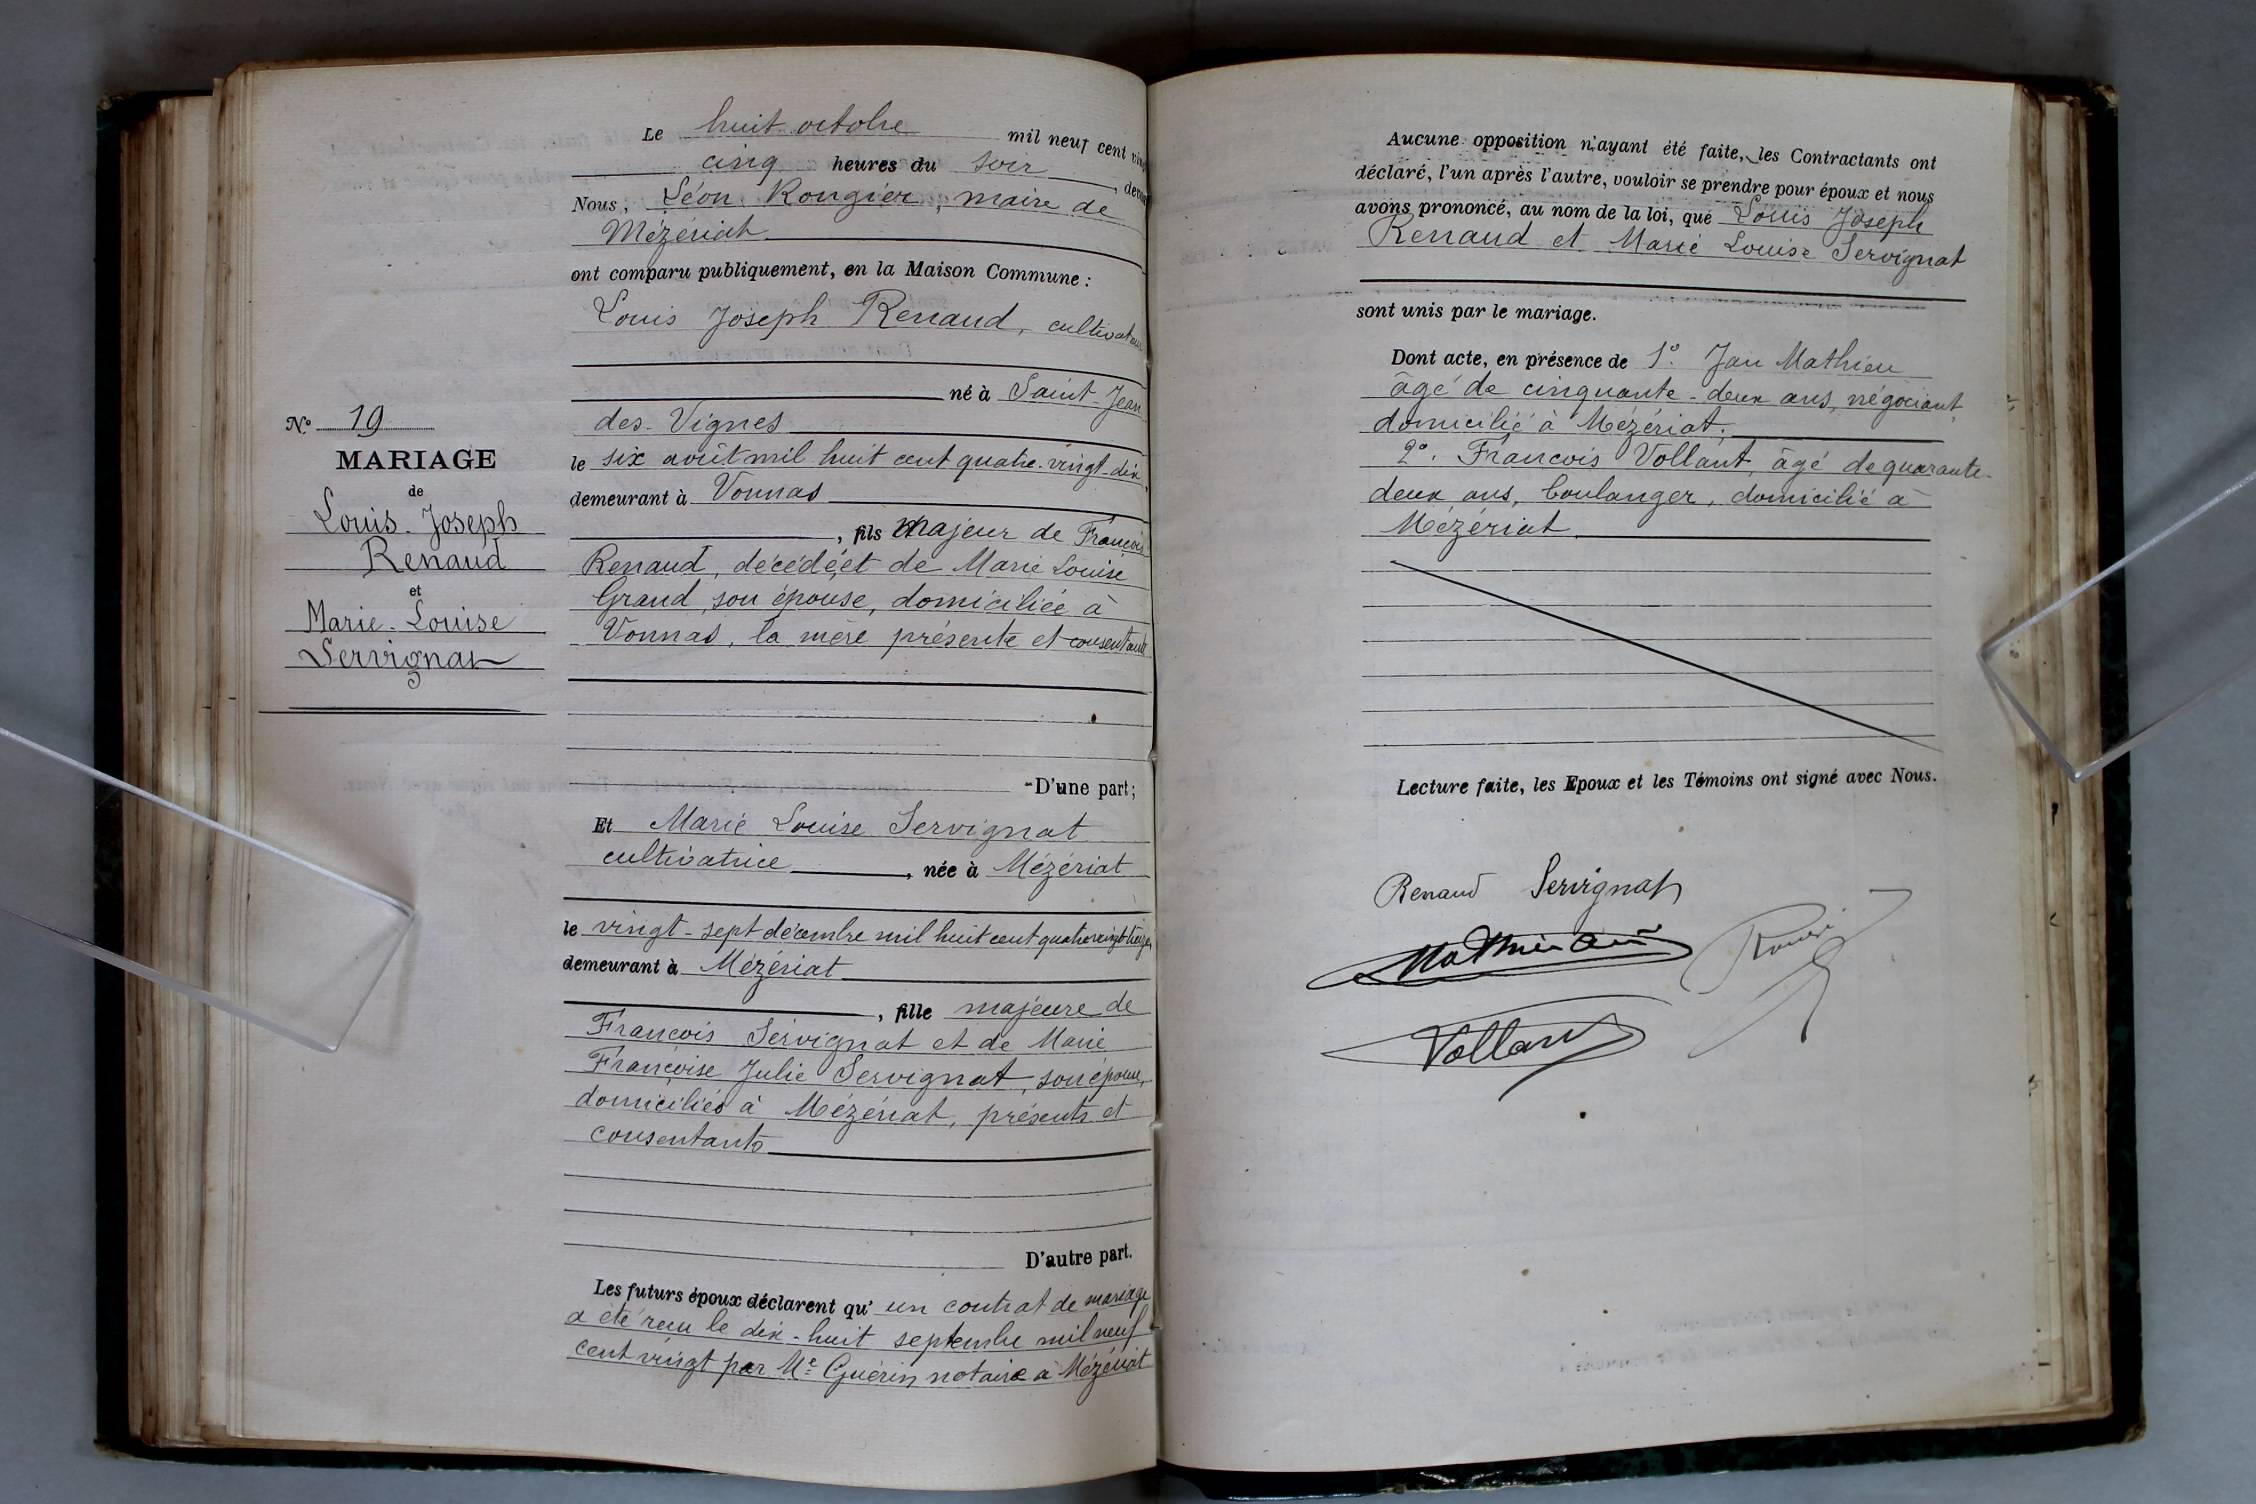 Le huit octobre mil neuf cent vingt
cinq heures du soir, devant
Nous, Léon Rougier, maire de
Mézériat
ont comparu publiquement, en la Maison Commune :
Louis Joseph Renaud, cultivateur
né à Saint-Jean
des-Vignes
le six août mil huit cent quatre-vingt-dix,
demeurant à Vonnas
, fils majeur de François
Renaud, décédé, et de Marie Louise
Grand, son épouse, domiciliée à
Vonnas, la mère présente et consentante
D'une part;
Et Marie Louise Servignat
cultivatrice, née à Mézériat
le vingt-sept décembre mil huit cent quatre vingt treize,
demeurant à Mézériat
, fille majeure de
François Servignat et de Marie
Françoise Julie Servignat, son épouse,
domiciliés à Mézériat, présents et
consentants
D'autre part.
Les futurs époux déclarent qu' un contrat de mariage
a été reçu le dix-huit septembre mil neuf
cent vingt par Me Guérin, notaire à Mézériat
No 19
MARIAGE
de
Louis-Joseph
Renaud
et
Marie-Louise
Servignat
Aucune opposition n'ayant été faite, les Contractants ont
déclaré, l'un après l'autre, vouloir se prendre pour époux et nous
avons prononcé, au nom de la loi, que Louis Joseph
Renaud et Marie Louise Servignat
sont unis par le mariage.
Dont acte, en présence de 1o. Jean Mathieu
âgé de cinquante-deux ans, négociant,
domicilié à Mézériat;
2o. François Vollant, âgé de quarante-
deux ans, boulanger, domicilié à
Mézériat
Lecture faite, les Epoux et les Témoins ont signé avec Nous.
Renaud Servignat
Vollant